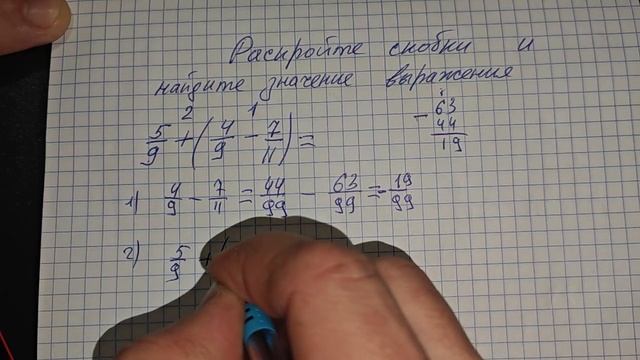 Раскройте скобки и
найдите значение выражение
2 1
5/9 + (4/9 - 7/11) =
- 63
44
19
1) 4/9 - 7/11 = 44/99 - 63/99 = - 19/99
2) 5/9 +